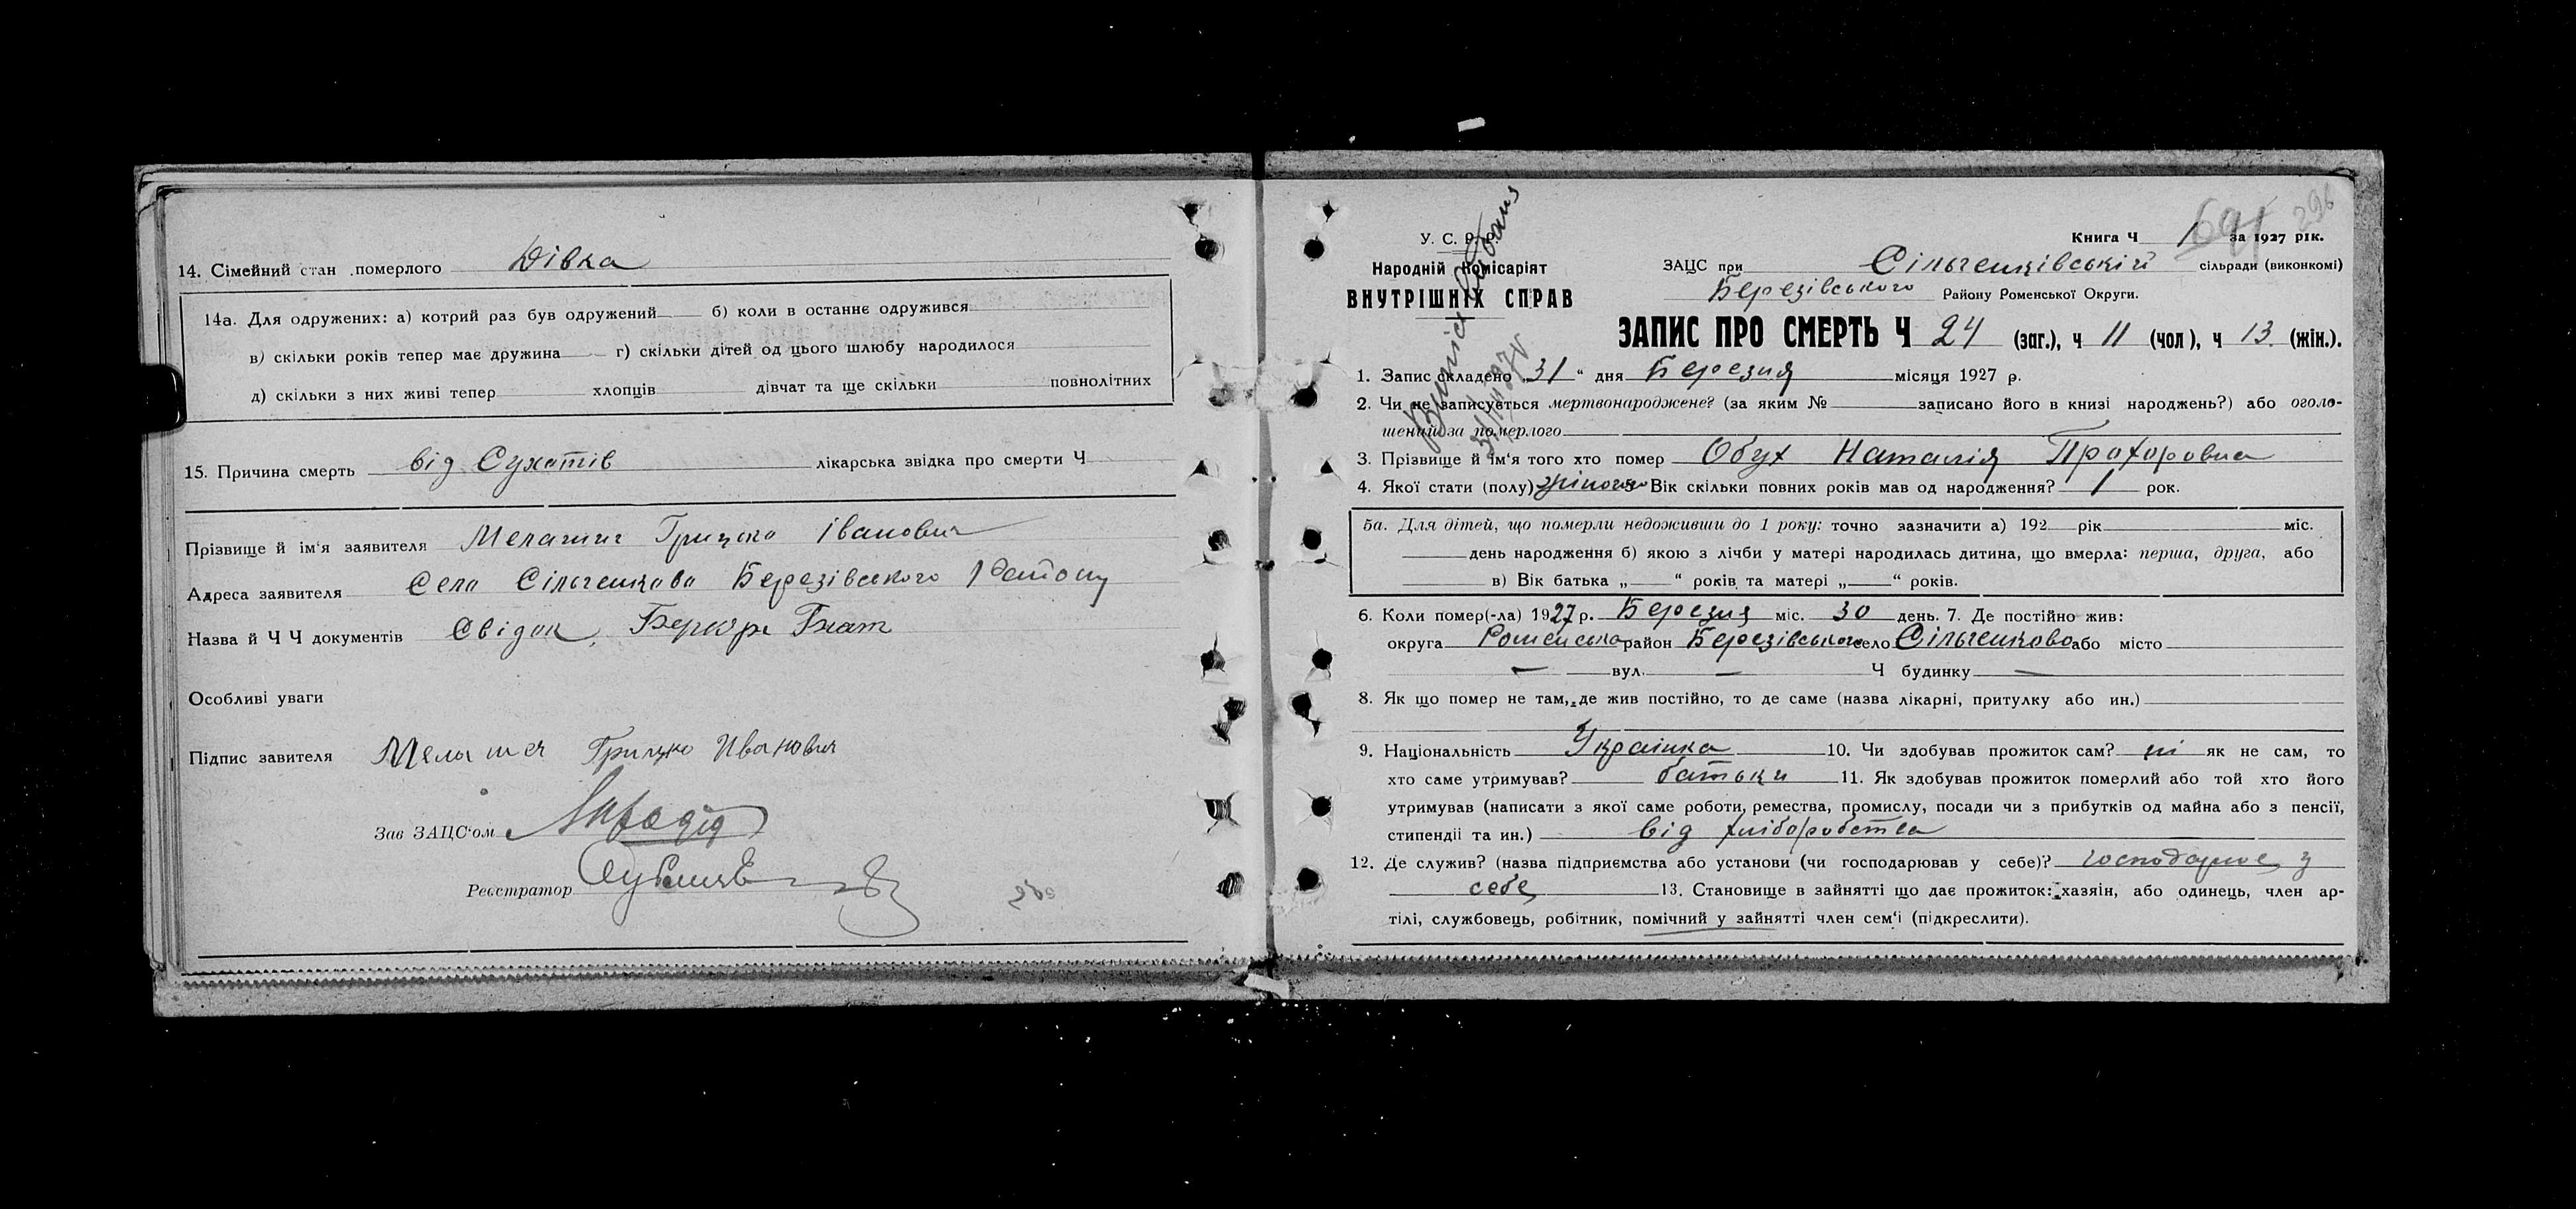 14. Сімейний стан померлого Дівка
14а. Для одружених: а) котрий раз був одружений б) коли в останнє одружився
в) скільки років тепер має дружина г) скільки дітей од цього шлюбу народилося
д) скільки з них живі тепер хлопців дівчат та ще скільки повнолітних
15. Причина смерть від Сухотів лікарська звідка про смерти Ч
Прізвище й ім'я заявителя Грицько Іванович
Адреса заявителя Села Сільченкова Березівського Району
Назва й Ч Ч документів Свідок
Особливі уваги
Підпис завителя Грицько Иванович
Зав ЗАЦС'ом
Реєстратор
691 296
У. С. Р. Р. Книга Ч 1 за 1927 рік.
Народній Комісаріят ЗАЦС при Сільченківській сільради (виконкомі)
ВНУТРІШНІХ СПРАВ Березівського Району Роменської Округи.
ЗАПИС ПРО СМЕРТЬ Ч 24 (заг.), ч 11 (чол), ч 13 (жін.).
1. Запис складено „31“ дня Березня місяця 1927 р.
2. Чи не записується мертвонароджене? (за яким № записано його в книзі народжень?) або оголо-
шений за померлого
3. Прізвище й ім'я того хто помер Обух Наталія Прохоровна
4. Якої стати (полу) жіночого Вік скільки повних років мав од народження? 1 рок.
5а. Для дітей, що померли недоживши до 1 року: точно зазначити а) 192 рік міс.
день народження б) якою з лічби у матері народилась дитина, що вмерла: перша, друга, або
в) Вік батька „ “ років та матері „ “ років.
6. Коли помер(-ла) 1927 р. Березня міс. 30 день. 7. Де постійно жив:
округа Роменська район Березівського село Сільченково або місто
— вул. — Ч будинку —
8. Як що помер не там, де жив постійно, то де саме (назва лікарні, притулку або ин.)
9. Національність Українка 10. Чи здобував прожиток сам? ні як не сам, то
хто саме утримував? батьки 11. Як здобував прожиток померлий або той хто його
утримував (написати з якої саме роботи, ремества, промислу, посади чи з прибутків од майна або з пенсії,
стипендії та ин.) від хліборобства
12. Де служив? (назва підприємства або установи (чи господарював у себе)? господарює у
себе 13. Становище в зайнятті що дає прожиток: хазяїн, або одинець, член ар-
тілі, службовець, робітник, помічний у зайнятті член сем'і (підкреслити).